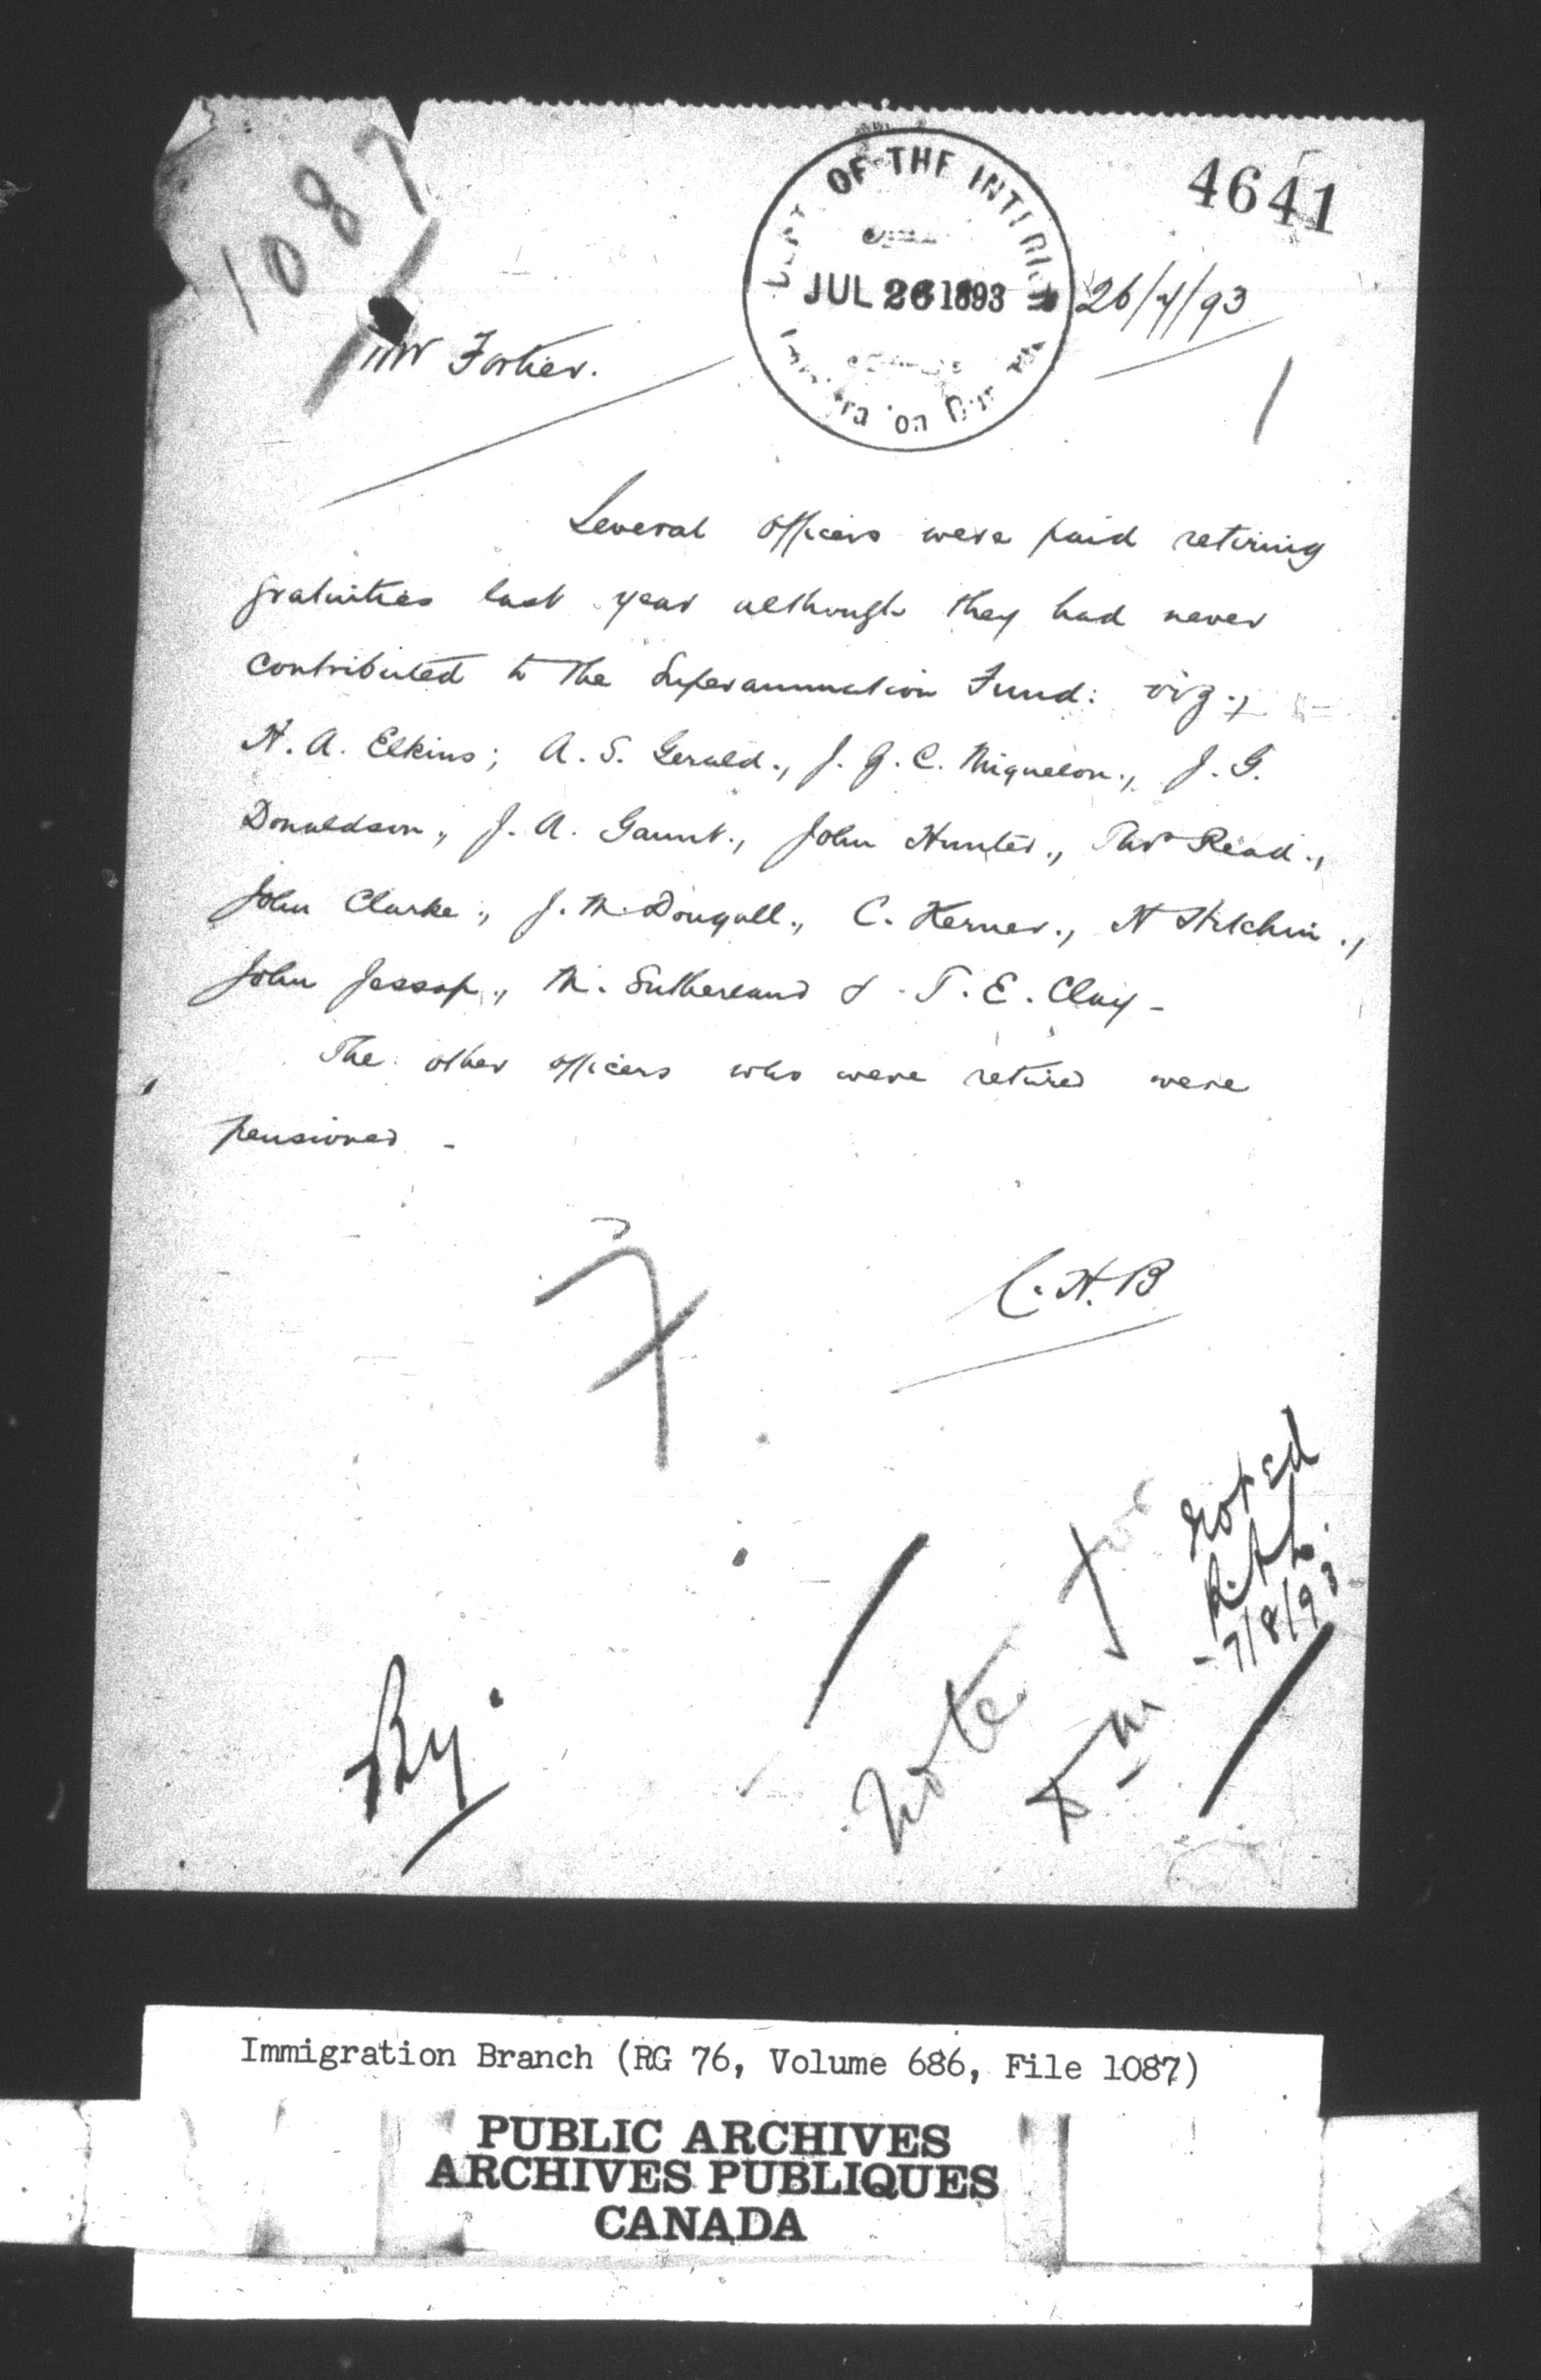 1087
4641
OF THE INTERIOR
JUL 26 1893
26/7/93
Mr Fortier.
Several officers were paid retiring
gratuities last year although they had never
contributed to the Superannuation Fund: viz.,
H. A. Elkins; A. S. Gerald., J. G. C. Miquelon., J. G.
Donaldson., J. A. Gaunt., John Hunter., Thos Read.,
John Clarke., J. McDougall., C. Kerner., H Hitchin.,
John Jessop., M. Sutherland & T. E. Clay -
The other officers who were retired were
pensioned -
C.H.B
7
Noted
7/8/93
Note for
By.
Immigration Branch (RG 76, Volume 686, File 1087)
PUBLIC ARCHIVES
ARCHIVES PUBLIQUES
CANADA